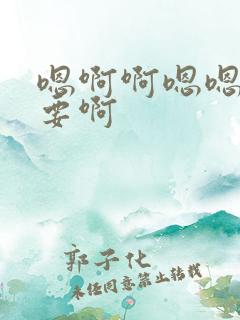 嗯啊啊嗯嗯
要啊
郭子化
未经同意禁止转载